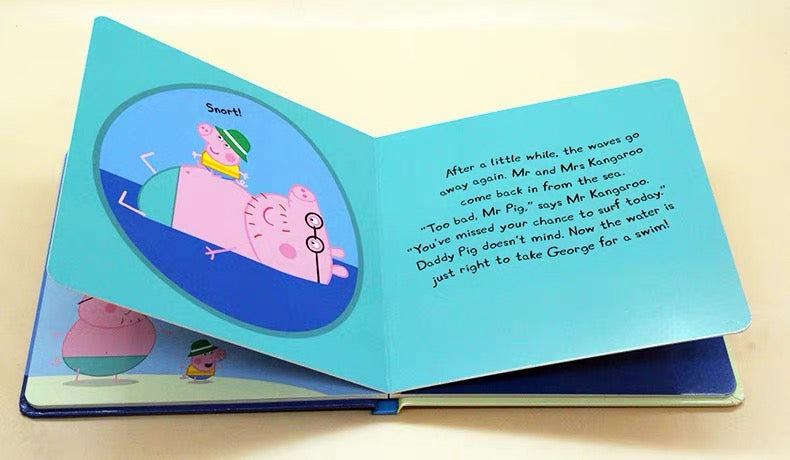 Snort!
After a little while, the waves go
away again. Mr and Mrs Kangaroo
come back in from the sea.
"Too bad, Mr Pig," says Mr Kangaroo.
"You've missed your chance to surf today."
Daddy Pig doesn't mind. Now the water is
just right to take George for a swim!